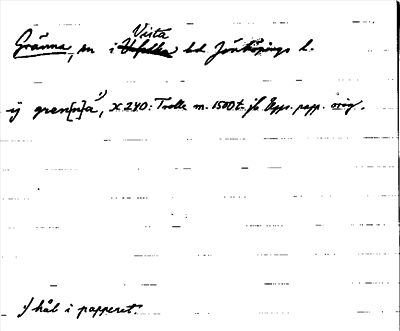 Gränna, sn i Vista hd Jönköpings l.
ij gren[n]a¹⁾, x 240: Trolle m. 1500 t. jb Upps. papp. orig.
1) hål i papperet.